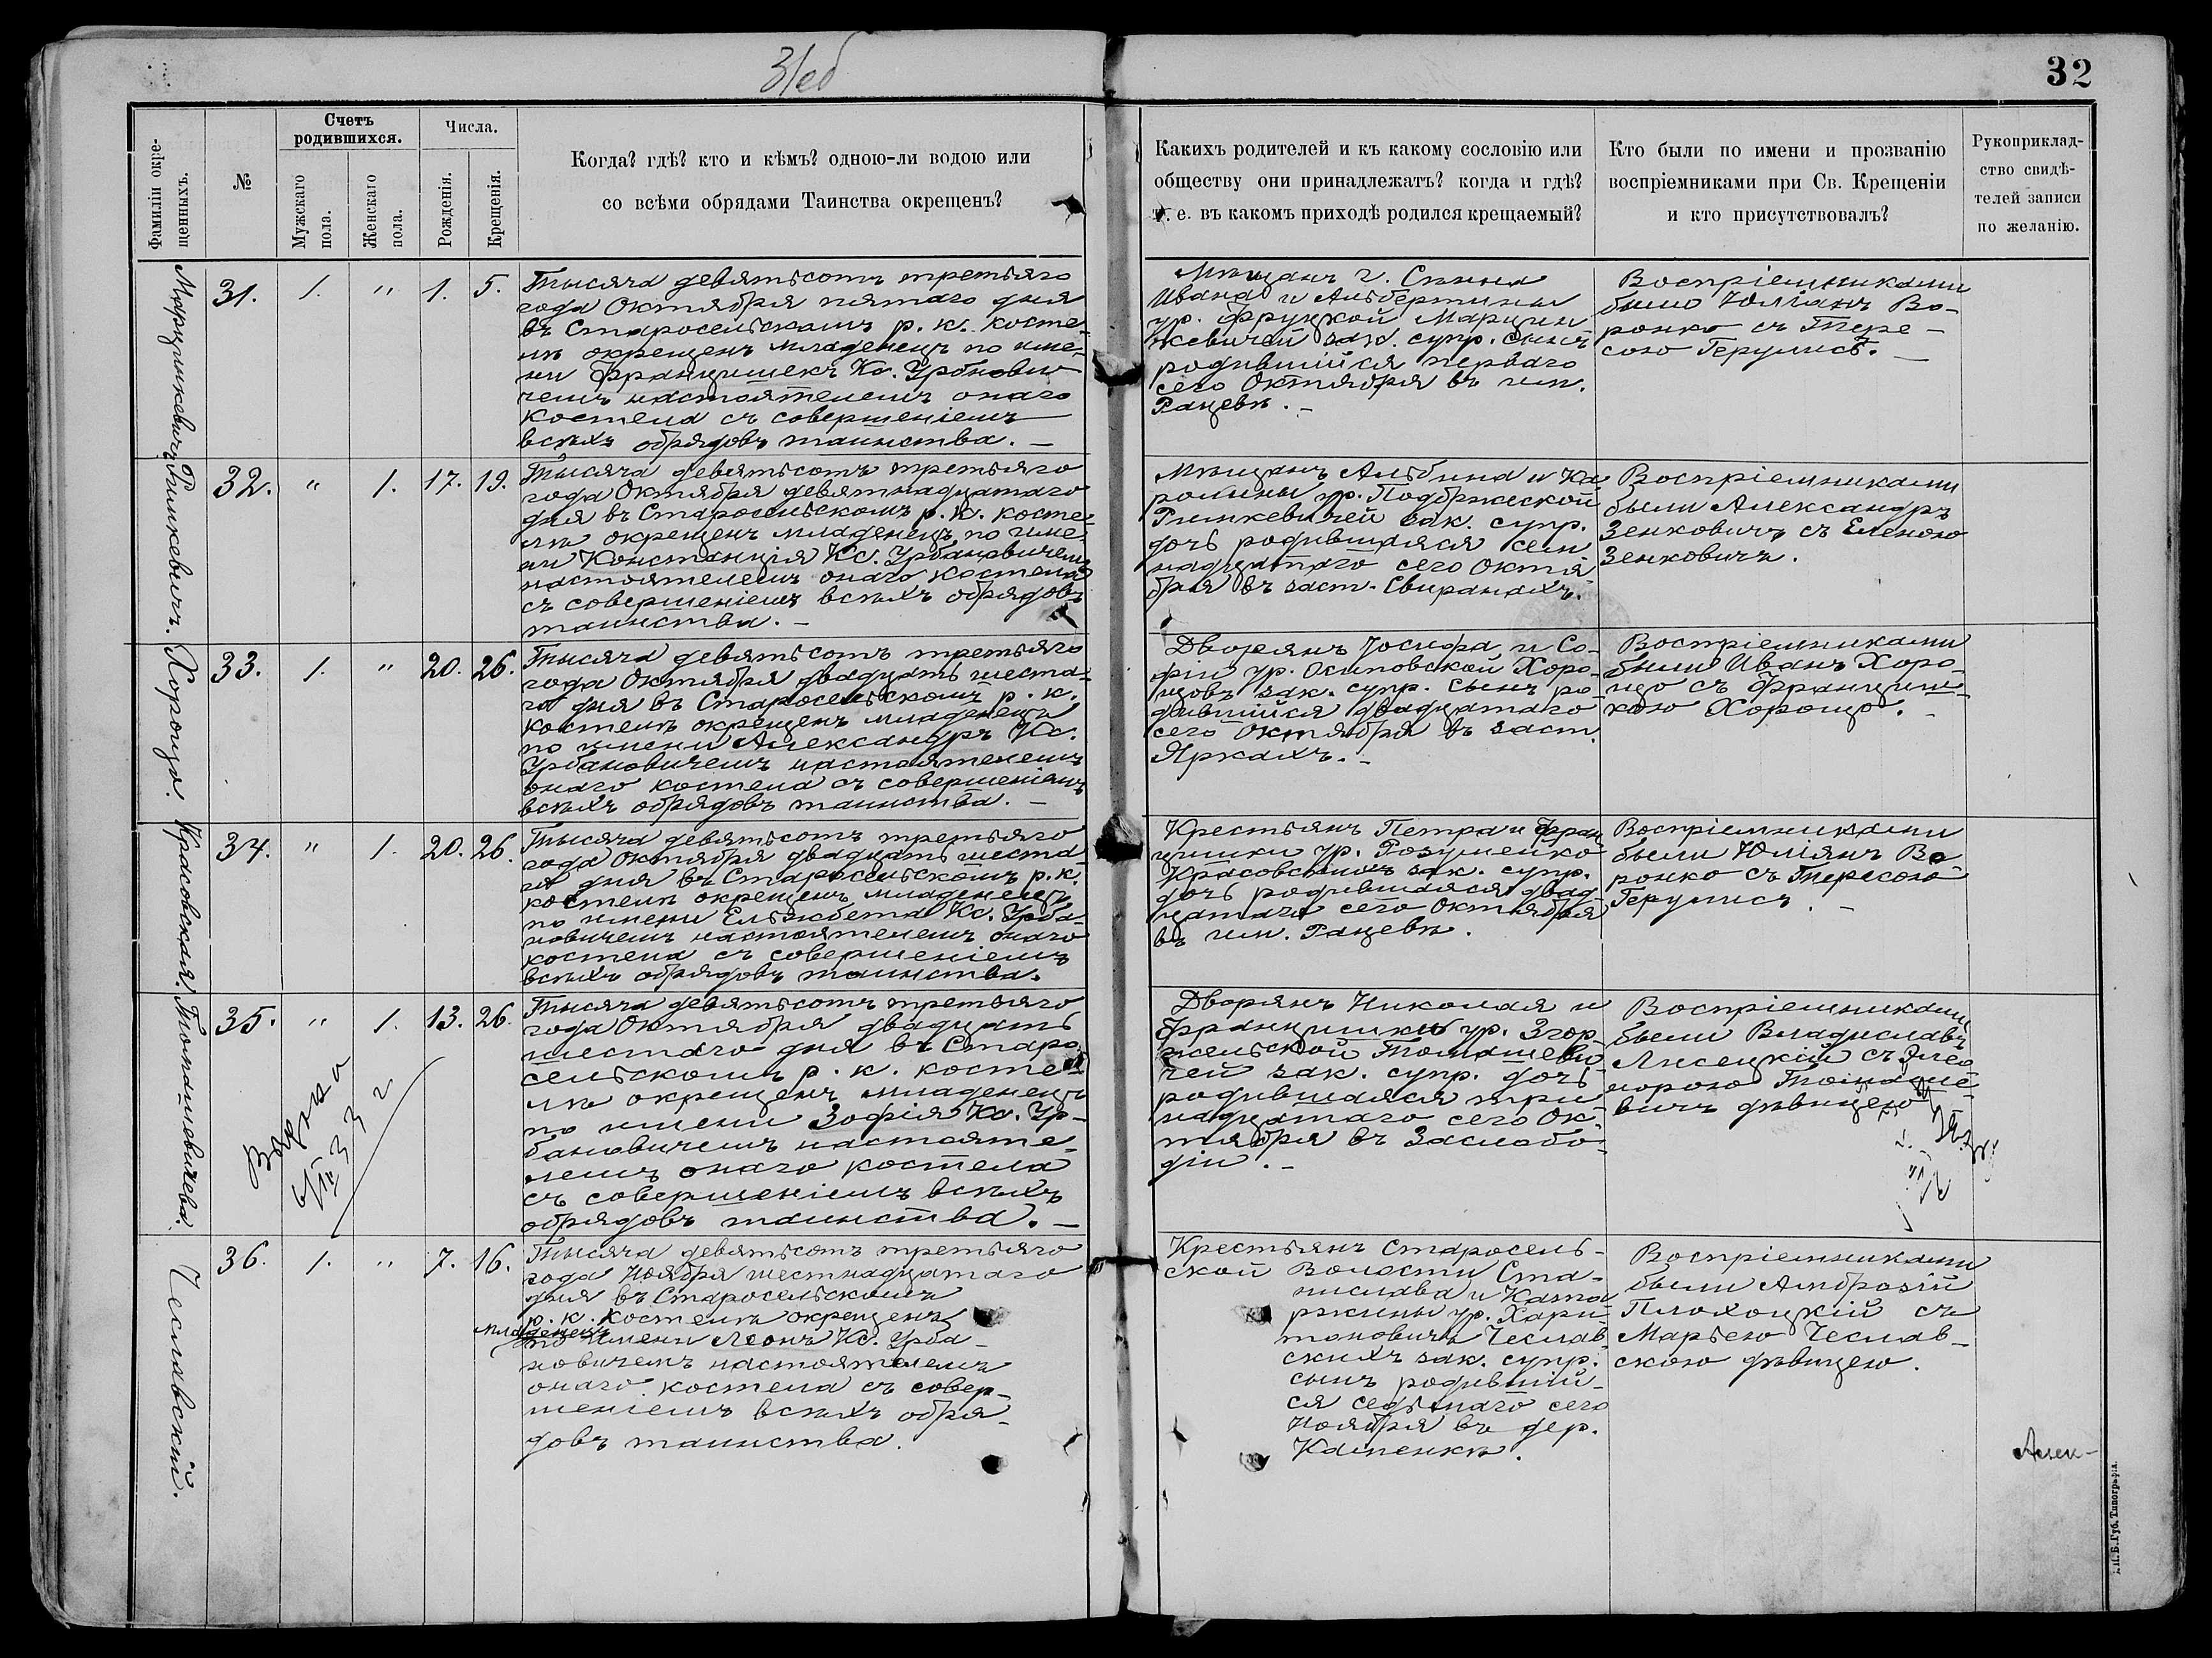 31об
32
Фамиліи окре-
щенныхъ.
№
Счетъ
родившихся.
Мужскаго
пола.
Женскаго
пола.
Числа.
Рожденія.
Крещенія.
Когда? гдѣ? кто и кѣмъ? одною-ли водою или
со всѣми обрядами Таинства окрещенъ?
Какихъ родителей и къ какому сословію или
обществу они принадлежатъ? когда и гдѣ?
т. е. въ какомъ приходѣ родился крещаемый?
Кто были по имени и прозванію
воспріемниками при Св. Крещеніи
и кто присутствовалъ?
Рукоприклад-
ство свидѣ-
телей записи
по желанію.
Марцинкевичъ
31. 1. " 1. 5.
Тысяча девятьсотъ третьяго
года Октября пятаго дня
въ Старосельскомъ р. к. косте-
лѣ окрещенъ младенецъ по име-
ни Францишекъ Кс. Урбанови-
чемъ настоятелемъ онаго
костела съ совершеніемъ
всѣхъ обрядовъ таинства. —
Мѣщанъ г.
Ивана и Альбертины
ур. Фруцкой Марцин
кевичей зак. супр. сынъ
родившійся перваго
сего Октября въ им.
Рацевѣ. –
Воспріемниками
были Юліанъ Во-
ронко съ Тере-
сою Герулисъ. —
Римкевичъ.
32. " 1. 17. 19.
Тысяча девятьсотъ третьяго
года Октября девятнадцатаго
дня въ Старосельскомъ р. к. косте-
лѣ окрещенъ младенецъ по име-
ни Констанція Кс. Урбановичемъ
настоятелемъ онаго костела
съ совершеніемъ всѣхъ обрядовъ
таинства. –
Мѣщанъ Альбина и Ка
ролины ур. Подбржеской
Римкевичей зак. супр.
дочь родившаяся сем
надцатаго сего Октя
бря въ заст. Свиранахъ.
Воспріемниками
были Александръ
Зенковичъ съ Еленою
Зенковичъ.
Хорощо.
33. 1. " 20. 26.
Тысяча девятьсотъ третьяго
года Октября двадцать шеста-
го дня въ Старосельскомъ р. к.
костелѣ окрещенъ младенецъ
по имени Александръ Кс.
Урбановичемъ настоятелемъ
онаго костела съ совершеніемъ
всѣхъ обрядовъ таинства. —
Дворянъ Іосифа и Со-
фіи ур. Осиповской Хоро-
щовъ зак. супр. сынъ ро-
дившійся двадцатаго
сего Октября въ заст.
Яркахъ. –
Воспріемниками
были Иванъ Хоро-
що съ Францишкою
Хорощо. –
Красовская.
34. " 1. 20. 26.
Тысяча девятьсотъ третьяго
года Октября двадцать шеста-
го дня въ Старосельскомъ р. к.
костелѣ окрещенъ младенецъ
по имени Ельжбета Кс. Урба-
новичемъ настоятелемъ онаго
костела съ совершеніемъ
всѣхъ обрядовъ таинства.
Крестьянъ Петра и Фран
цишки ур. Розумейко
Красовскихъ зак. супр.
дочь родившаяся двад-
цатаго сего Октября
въ им. Рацевѣ.
Воспріемниками
были Юліянъ Во
ронко съ Тересою
Герулисъ. –
Томашевичева.
35. " 1. 13. 26.
Тысяча девятьсотъ третьяго
года Октября двадцать
шестаго дня въ Старо
сельскомъ р. к. косте-
лѣ окрещенъ младенецъ
по имени Зофія Кс. Ур-
бановичемъ настояте-
лемъ онаго костела
съ совершеніемъ всѣхъ
обрядовъ таинства. —
Дворянъ Николая и
Францишки ур. Згор-
жельской Томашеви-
чей зак. супр. дочь
родившаяся три-
надцатаго сего Ок-
тября въ Заслобо-
діи. –
Воспріемниками
были Владиславъ
Лисецкій съ Элео
норою Томаше-
вичъ дѣвицею
Чеславскій.
36. 1. " 7. 16.
Тысяча девятьсотъ третьяго
года Ноября шестнадцатаго
дня въ Старосельскомъ
р. к. костелѣ окрещенъ
младенецъ
по имени Леонъ Кс. Урба-
новичемъ настоятелемъ
онаго костела съ совер-
шеніемъ всѣхъ обря-
довъ таинства.
Крестьянъ Старосель-
ской Волости Ста-
нислава и Ката
ржины ур. Хари-
тоновичъ Чеслав-
скихъ зак. супр.
сынъ родившій-
ся седьмаго сего
Ноября въ дер.
Каменкѣ.
Воспріемниками
были Амброзій
Плохоцкій съ
Марьею Чеслав-
скою дѣвицею.
Алек-
Губ. Типографія.